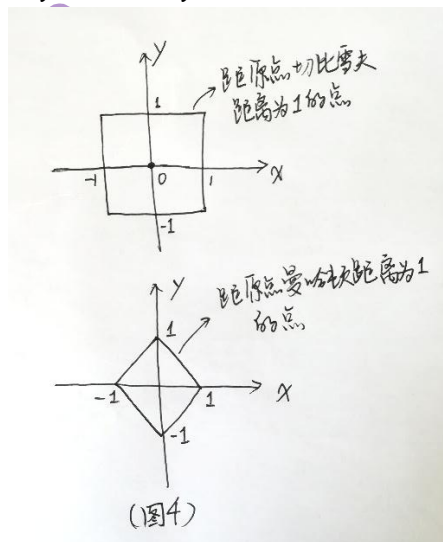 y
距原点切比雪夫
距离为1的点
1
-1
0
1
x
-1
y
距原点曼哈顿距离为1
的点
1
-1
1
x
-1
(图4)